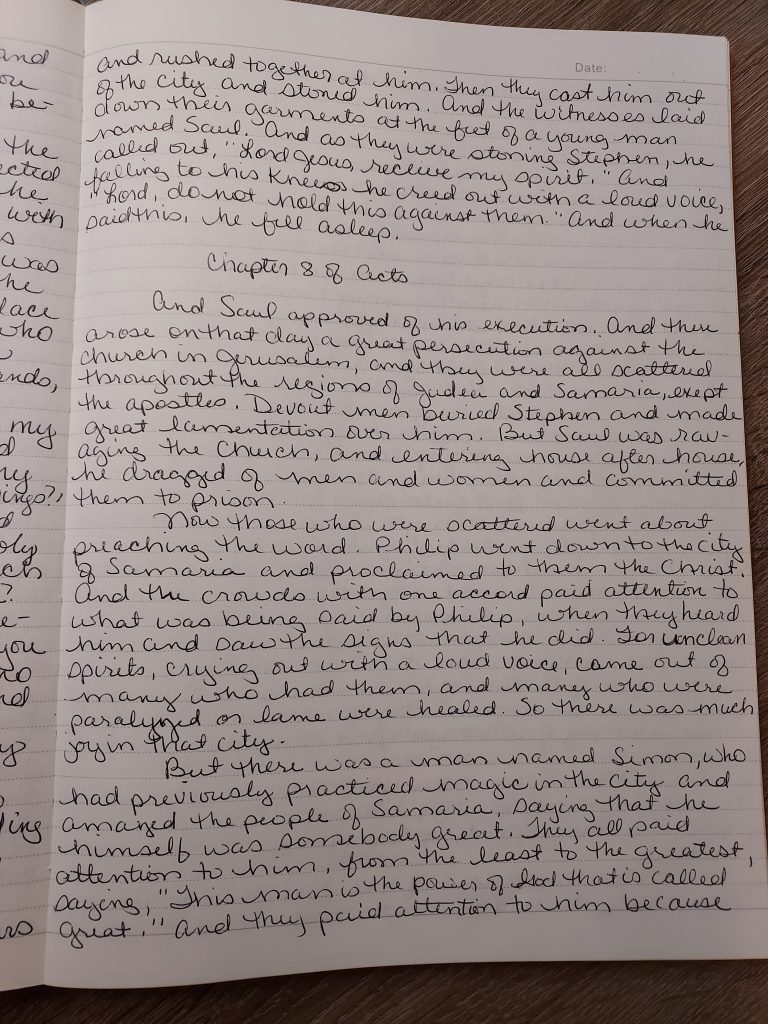 and
ou
be-
the
ected
he
with
s
was
he
lace
who
ands,
my
d
ny
ings?"
d
oly
ch
?
e-
you
to
nd
up
ding
ers
Date:
and rushed together at him. Then they cast him out
of the city and stoned him. And the witnesses laid
down their garments at the feet of a young man
named Saul. And as they were stoning Stephen, he
called out, "Lord Jesus, receive my spirit." And
falling to his knees he creed out with a loud voice,
"Lord, do not hold this against them." And when he
said this, he fell asleep.
Chapter 8 of Acts
And Saul approved of his execution. And there
arose on that day a great persecution against the
church in Jerusalem, and they were all scattered
throughout the regions of Judea and Samaria, exept
the apostles. Devout men buried Stephen and made
great lamentation over him. But Saul was rav-
aging the church, and entering house after house,
he dragged of men and women and committed
them to prison.
Now those who were scattered went about
preaching the word. Philip went down to the city
of Samaria and proclaimed to them the Christ.
And the crowds with one accord paid attention to
what was being said by Philip, when they heard
him and saw the signs that he did. For unclean
spirits, crying out with a loud voice, came out of
many who had them, and many who were
paralyzed or lame were healed. So there was much
joy in that city.
But there was a man named Simon, who
had previously practiced magic in the city and
amazed the people of Samaria, saying that he
himself was somebody great. They all paid
attention to him, from the least to the greatest,
saying, "This man is the power of God that is called
great." And they paid attention to him because